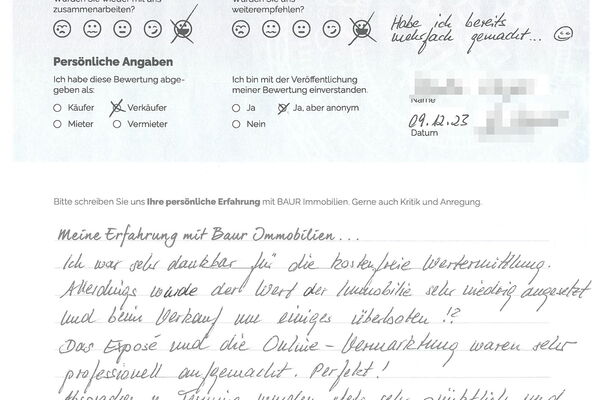 Würden Sie wieder mit uns
zusammenarbeiten?
Würden Sie uns
weiterempfehlen?
Habe ich bereits
mehrfach gemacht...
Persönliche Angaben
Ich habe diese Bewertung abge-
geben als:
Käufer
Verkäufer
Mieter
Vermieter
Ich bin mit der Veröffentlichung
meiner Bewertung einverstanden.
Ja
Ja, aber anonym
Nein
Name
09.12.23
Datum
Bitte schreiben Sie uns Ihre persönliche Erfahrung mit BAUR Immobilien. Gerne auch Kritik und Anregung.
Meine Erfahrung mit Baur Immobilien...
Ich war sehr dankbar für die kostenfreie Wertermittlung.
Allerdings wurde der Wert der Immobilie sehr niedrig angesetzt
und beim Verkauf um einiges überboten !?
Das Exposé und die Online-Vermarktung waren sehr
professionell aufgemacht. Perfekt!
Absprachen u. Termine wurden stets sehr pünktlich und